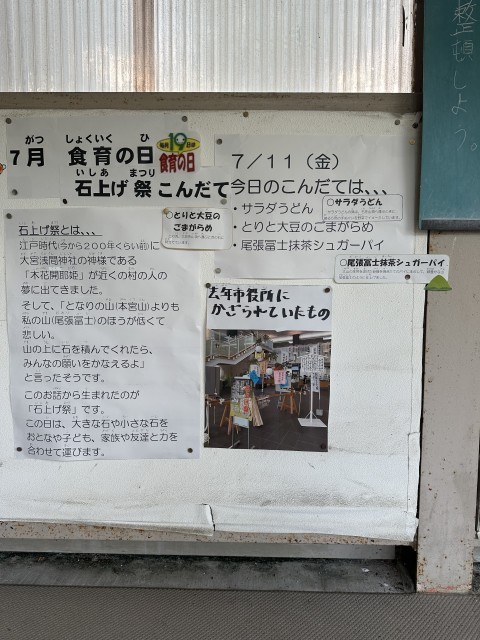 整頓しよう。
7月 食育の日
がつ しょくいく ひ
毎月19日は
食育の日
いしあ まつり
石上げ祭 こんだて
7/11（金）
今日のこんだては、、、
・サラダうどん
・とりと大豆のごまがらめ
・尾張冨士抹茶シュガーパイ
○サラダうどん
○とりと大豆の
ごまがらめ
○尾張冨士抹茶シュガーパイ
石上げ祭とは、、、
江戸時代(今から200年くらい前)に
大宮浅間神社の神様である
「木花開耶姫」が近くの村の人の
夢に出てきました。
そして、「となりの山(本宮山)よりも
私の山(尾張冨士)のほうが低くて
悲しい。
山の上に石を積んでくれたら、
みんなの願いをかなえるよ」
と言ったそうです。
このお話から生まれたのが
「石上げ祭」です。
この日は、大きな石や小さな石を
おとなや子ども、家族や友達と力を
合わせて運びます。
去年市役所に
かざられていたもの